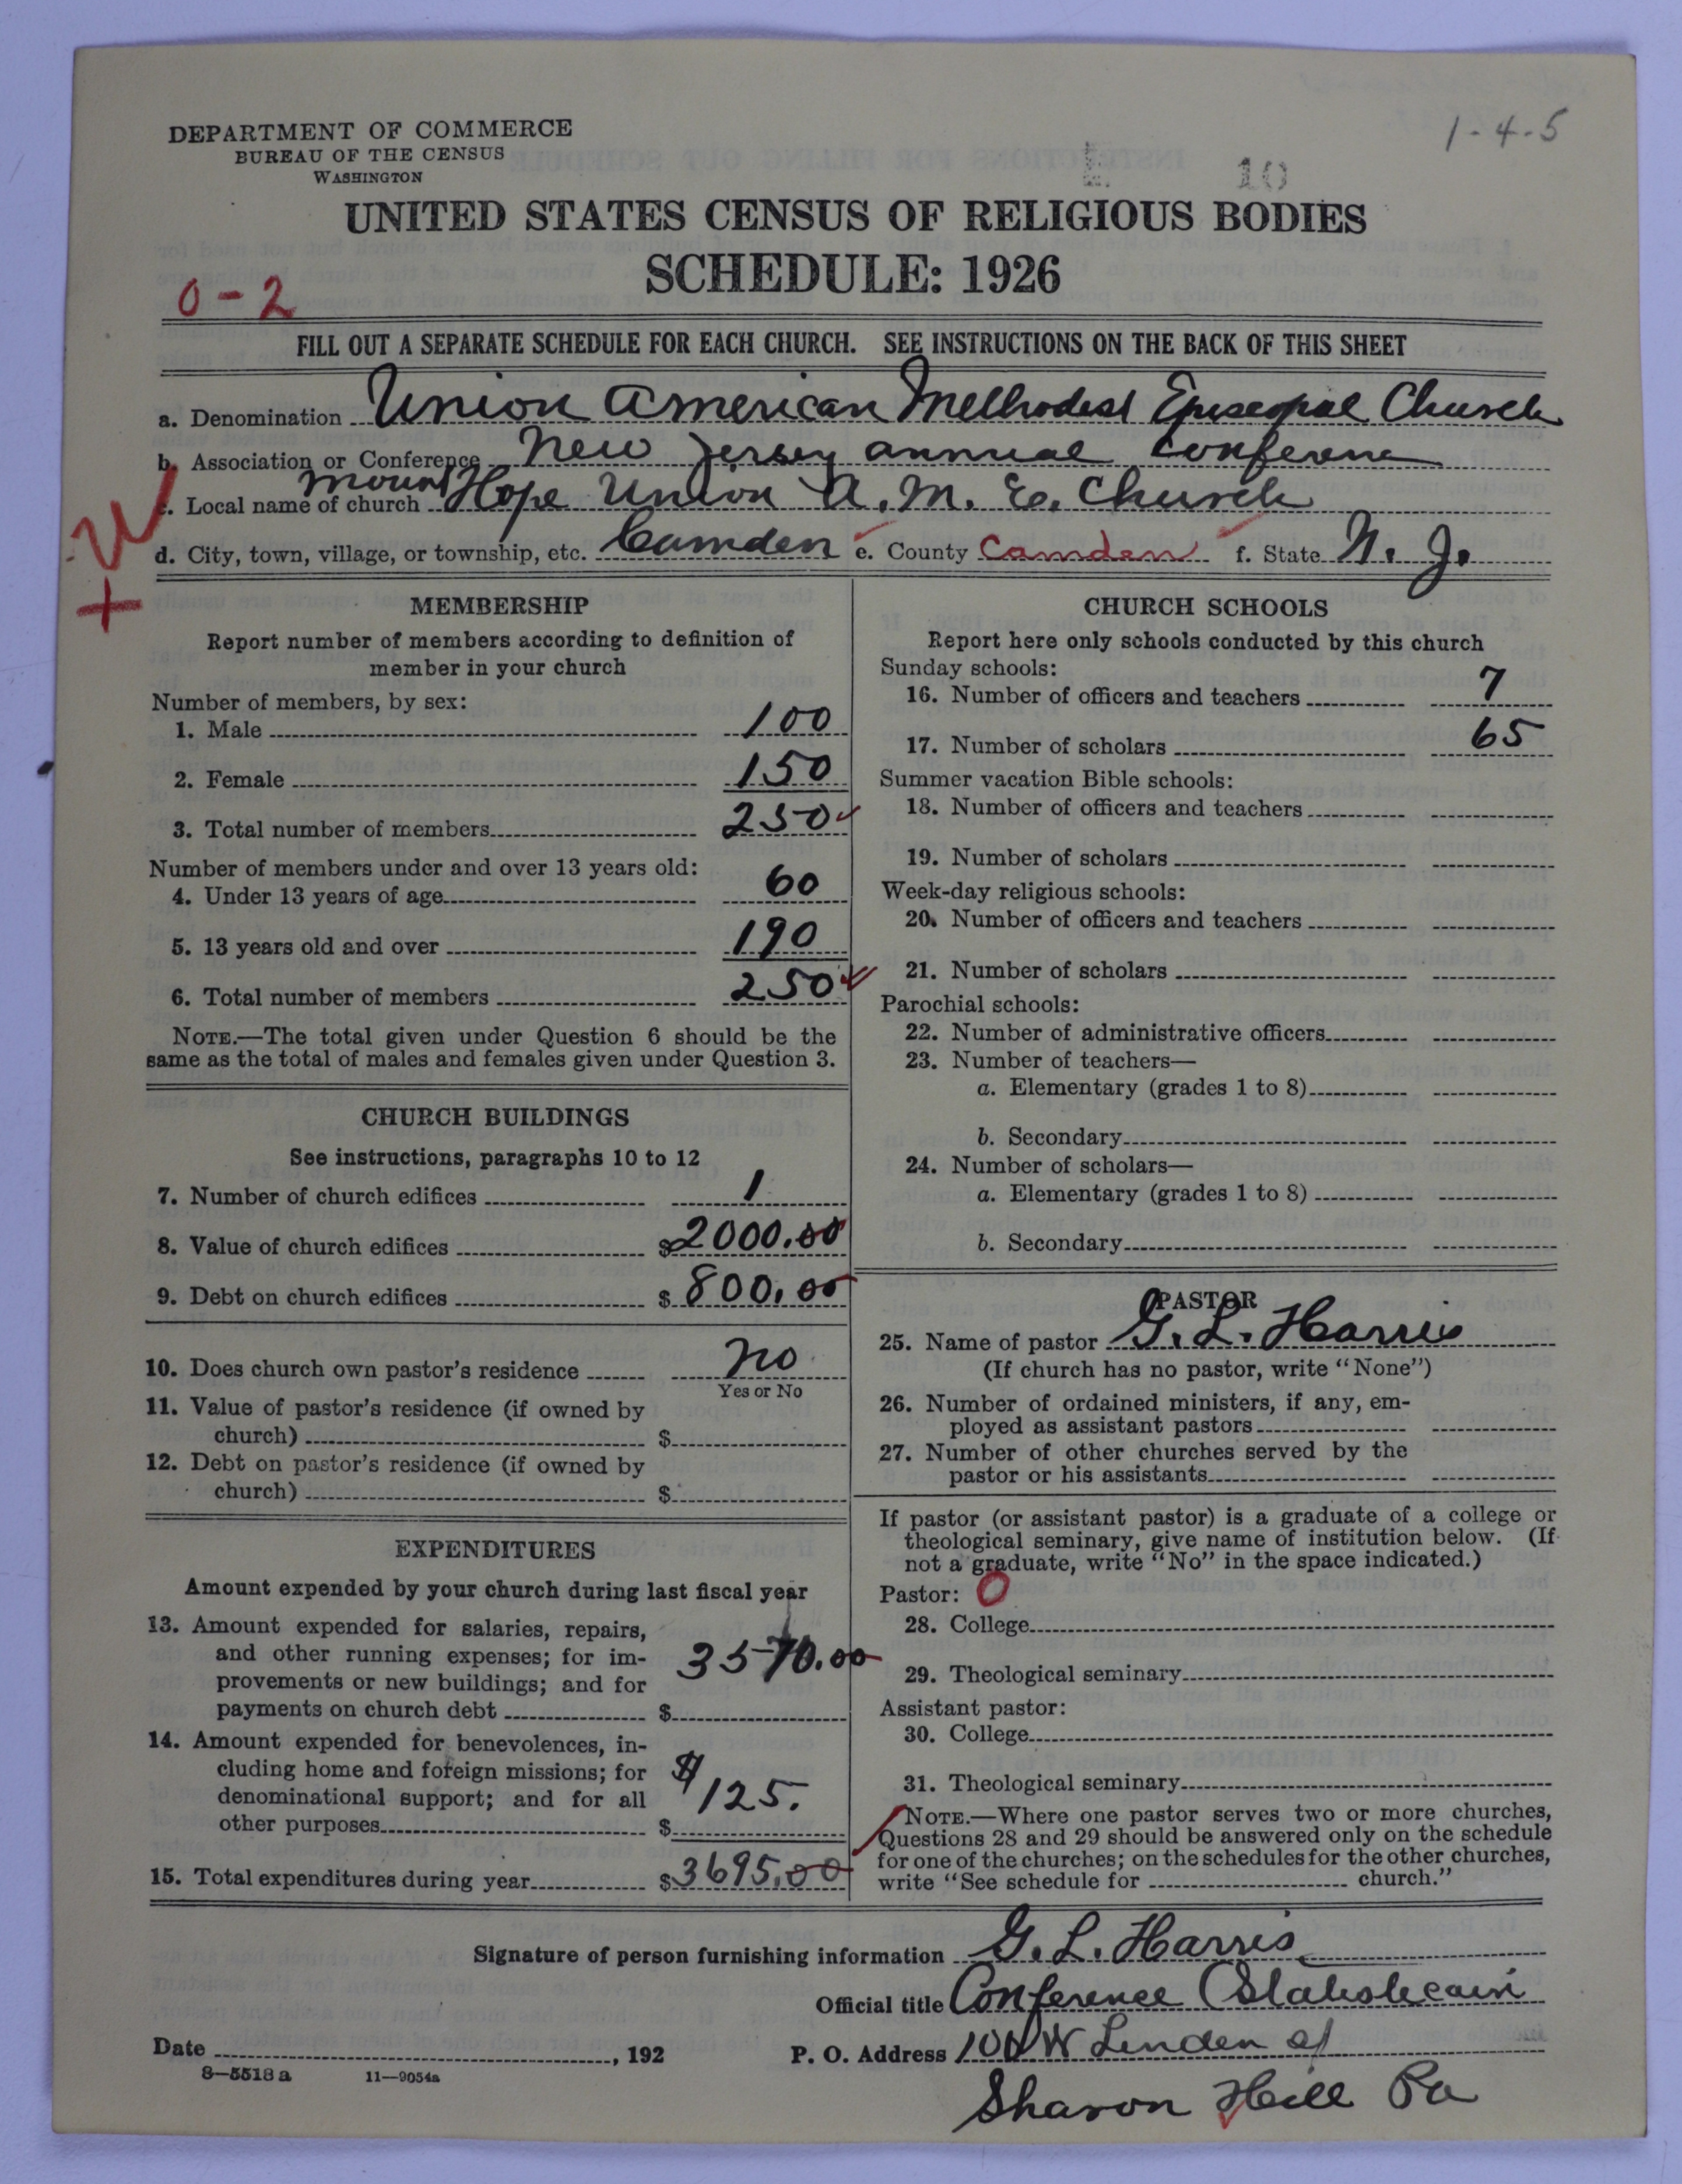 1-4-5
DEPARTMENT OF COMMERCE
BUREAU OF THE CENSUS
WASHINGTON
10
UNITED STATES CENSUS OF RELIGIOUS BODIES
SCHEDULE: 1926
0-2
FILL OUT A SEPARATE SCHEDULE FOR EACH CHURCH. SEE INSTRUCTIONS ON THE BACK OF THIS SHEET
a. Denomination Union American Methodist Episcopal Church
b. Association or Conference New Jersey annual Conference
c. Local name of church Mount Hope Union A. M. E. Church
d. City, town, village, or township, etc. Camden e. County Camden f. State N. J.
MEMBERSHIP
Report number of members according to definition of
member in your church
Number of members, by sex:
1. Male 100
2. Female 150
3. Total number of members 250
Number of members under and over 13 years old:
4. Under 13 years of age 60
5. 13 years old and over 190
6. Total number of members 250
NOTE.—The total given under Question 6 should be the
same as the total of males and females given under Question 3.
CHURCH BUILDINGS
See instructions, paragraphs 10 to 12
7. Number of church edifices 1
8. Value of church edifices $2000.00
9. Debt on church edifices $800.00
10. Does church own pastor's residence no
Yes or No
11. Value of pastor's residence (if owned by
church) $
12. Debt on pastor's residence (if owned by
church) $
EXPENDITURES
Amount expended by your church during last fiscal year
13. Amount expended for salaries, repairs,
and other running expenses; for im-
provements or new buildings; and for
payments on church debt $ 3570.00
14. Amount expended for benevolences, in-
cluding home and foreign missions; for
denominational support; and for all
other purposes $ $125.
15. Total expenditures during year $3695.00
CHURCH SCHOOLS
Report here only schools conducted by this church
Sunday schools:
16. Number of officers and teachers 7
17. Number of scholars 65
Summer vacation Bible schools:
18. Number of officers and teachers
19. Number of scholars
Week-day religious schools:
20. Number of officers and teachers
21. Number of scholars
Parochial schools:
22. Number of administrative officers
23. Number of teachers—
a. Elementary (grades 1 to 8)
b. Secondary
24. Number of scholars—
a. Elementary (grades 1 to 8)
b. Secondary
PASTOR
25. Name of pastor G. L. Harris
(If church has no pastor, write "None")
26. Number of ordained ministers, if any, em-
ployed as assistant pastors
27. Number of other churches served by the
pastor or his assistants
If pastor (or assistant pastor) is a graduate of a college or
theological seminary, give name of institution below. (If
not a graduate, write "No" in the space indicated.)
Pastor: 0
28. College
29. Theological seminary
Assistant pastor:
30. College
31. Theological seminary
NOTE.—Where one pastor serves two or more churches,
Questions 28 and 29 should be answered only on the schedule
for one of the churches; on the schedules for the other churches,
write "See schedule for church."
Signature of person furnishing information G. L. Harris
Official title Conference Statistician
Date , 192 P. O. Address W Linden
8—5518 a 11—9054a
Sharon Hill Pa